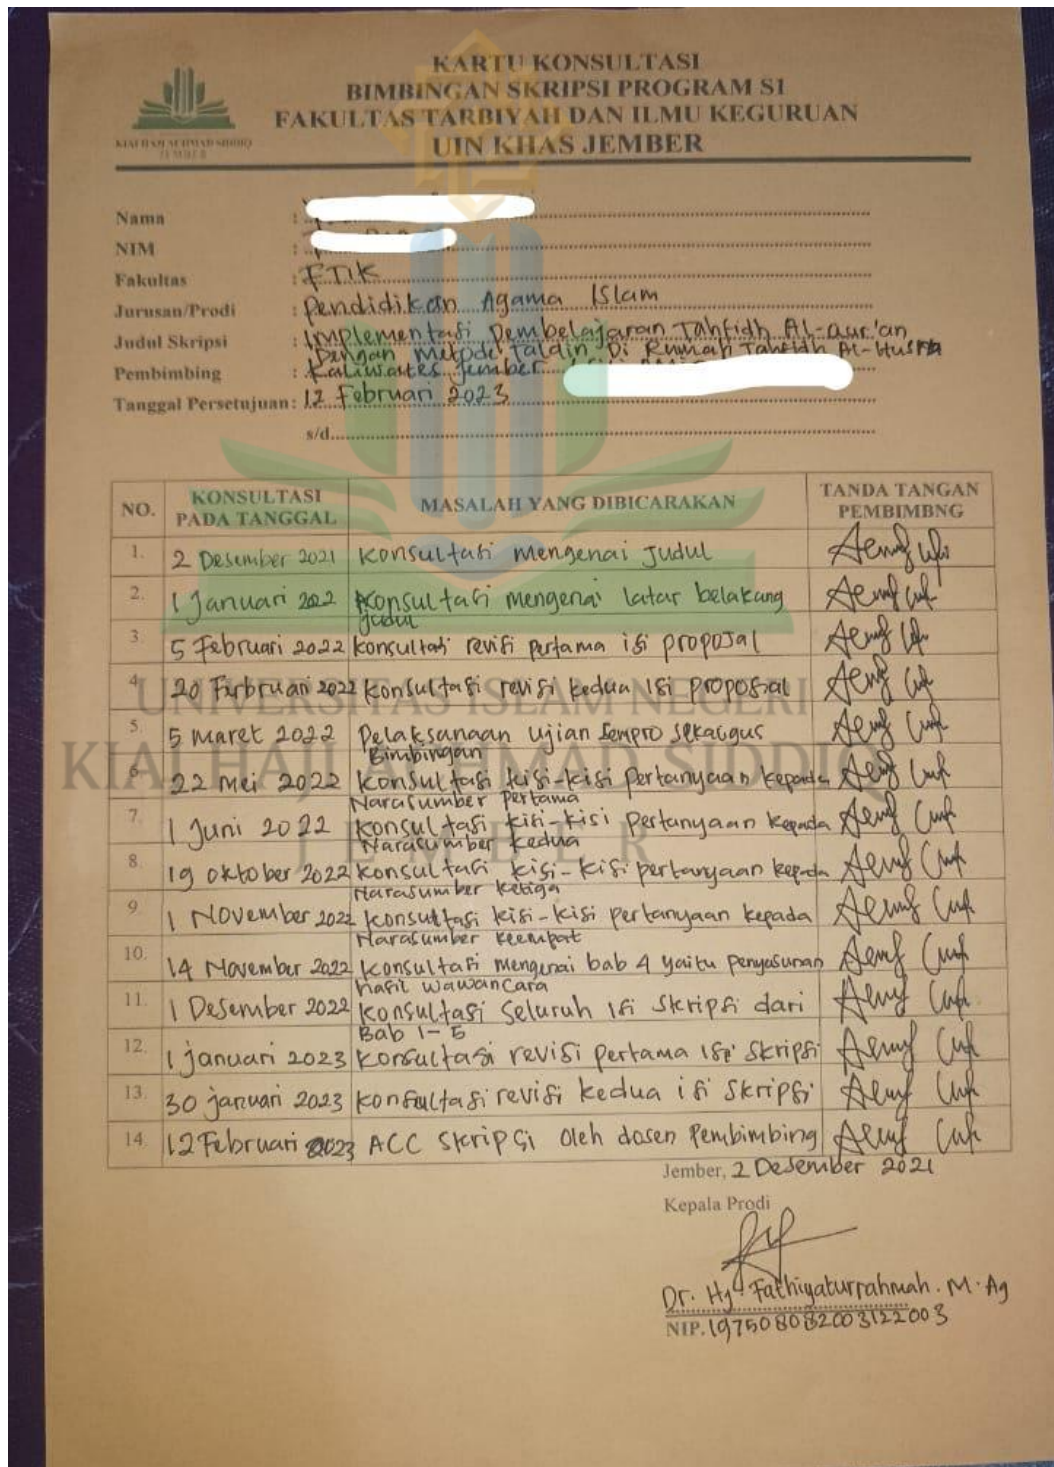 KARTU KONSULTASI
BIMBINGAN SKRIPSI PROGRAM S1
FAKULTAS TARBIYAH DAN ILMU KEGURUAN
UIN KHAS JEMBER
KIAI HAJI ACHMAD SIDDIQ
JEMBER
Nama :
NIM :
Fakultas : FTIK
Jurusan/Prodi : Pendidikan Agama Islam
Judul Skripsi : Implementasi Pembelajaran Tahfidh Al-Qur'an
Dengan Metode Taldin Di Rumah Tahfidh Al-Husna
Pembimbing : Kaliwates Jember
Tanggal Persetujuan : 12 Februari 2023
s/d
NO. KONSULTASI PADA TANGGAL MASALAH YANG DIBICARAKAN TANDA TANGAN PEMBIMBNG
1. 2 Desember 2021 Konsultasi mengenai judul
2. 1 Januari 2022 Konsultasi mengenai latar belakang
judul
3 5 Februari 2022 konsultasi revisi pertama isi proposal
4. 20 Firbruari 2022 konsultasi revisi kedua isi proposal
5. 5 maret 2022 Pelaksanaan ujian sempro sekaligus
Bimbingan
6. 22 mei 2022 Konsultasi kisi-kisi pertanyaan kepada
Narasumber Pertama
7. 1 Juni 2022 Konsultasi kisi-kisi pertanyaan kepada
Narasumber kedua
8. 19 oktober 2022 konsultasi kisi-kisi pertanyaan kepada
Narasumber ketiga
9. 1 November 2022 konsultasi kisi-kisi pertanyaan kepada
Narasumber keempat
10. 14 November 2022 konsultasi mengenai bab 4 yaitu penyusunan
hasil wawancara
11. 1 Desember 2022 konsultasi seluruh isi skripsi dari
Bab 1-5
12. 1 januari 2023 konsultasi revisi pertama isi skripsi
13. 30 januari 2023 konsultasi revisi kedua isi skripsi
14. 12 Februari 2023 ACC skripsi oleh dosen Pembimbing
UNIVERSITAS ISLAM NEGERI
KIAI HAJI ACHMAD SIDDIQ
JEMBER
Jember, 2 Desember 2021
Kepala Prodi
Dr. Hj. Fathiyaturrahmah. M.Ag
NIP. 197508082003122003